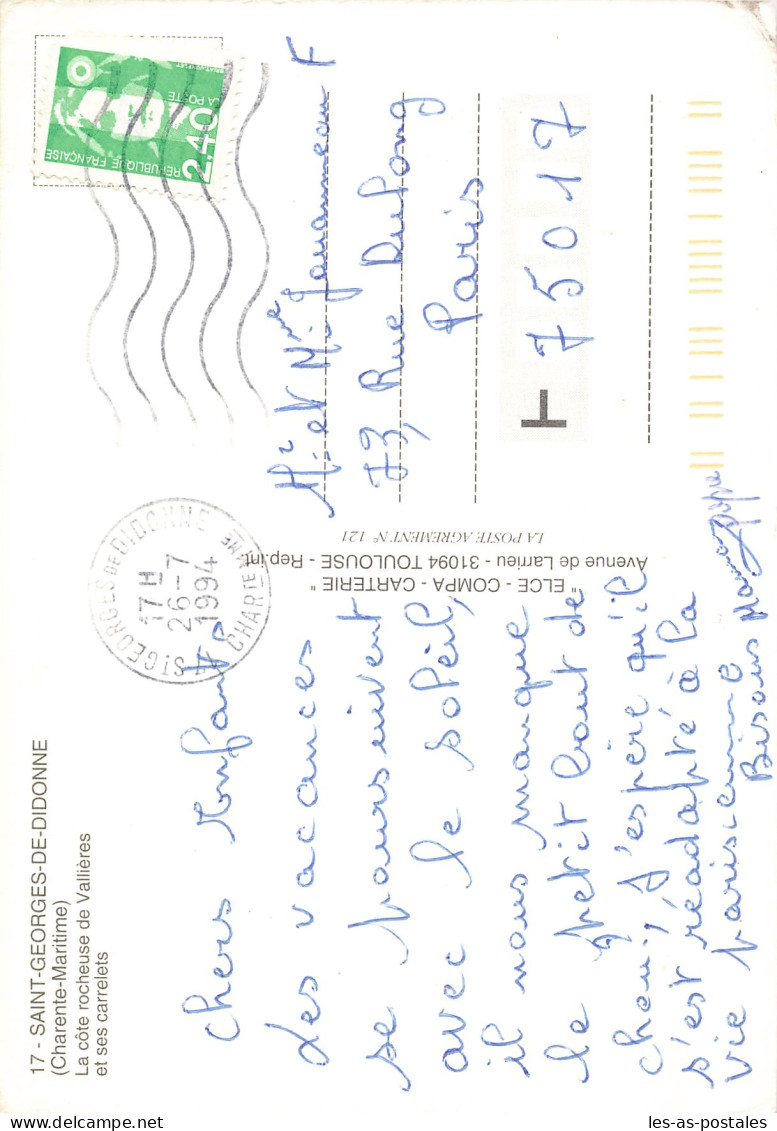 17 - SAINT-GEORGES-DE-DIDONNE
(Charente-Maritime)
La côte rocheuse de Vallières
et ses carrelets
Chers Enfants
Les vacances
se poursuivent
avec le soleil,
il nous manque
le petit bout de
chou, J'espère qu'il
s'est réadapté à la
vie parisienne
Bisous
ST GEORGES DE DIDONNE
17 H
26-7
1994
CHARTE MME
" ELCE - COMPA - CARTERIE "
Avenue de Larrieu - 31094 TOULOUSE - Rep.int.
LA POSTE AGREMENT N° 121
BRIAT-JUMELET
LA POSTE
2,40
REPUBLIQUE FRANÇAISE
Mr et Mme Jouanneau F
73, Rue Dulong
Paris
75017
les-as-postales.com